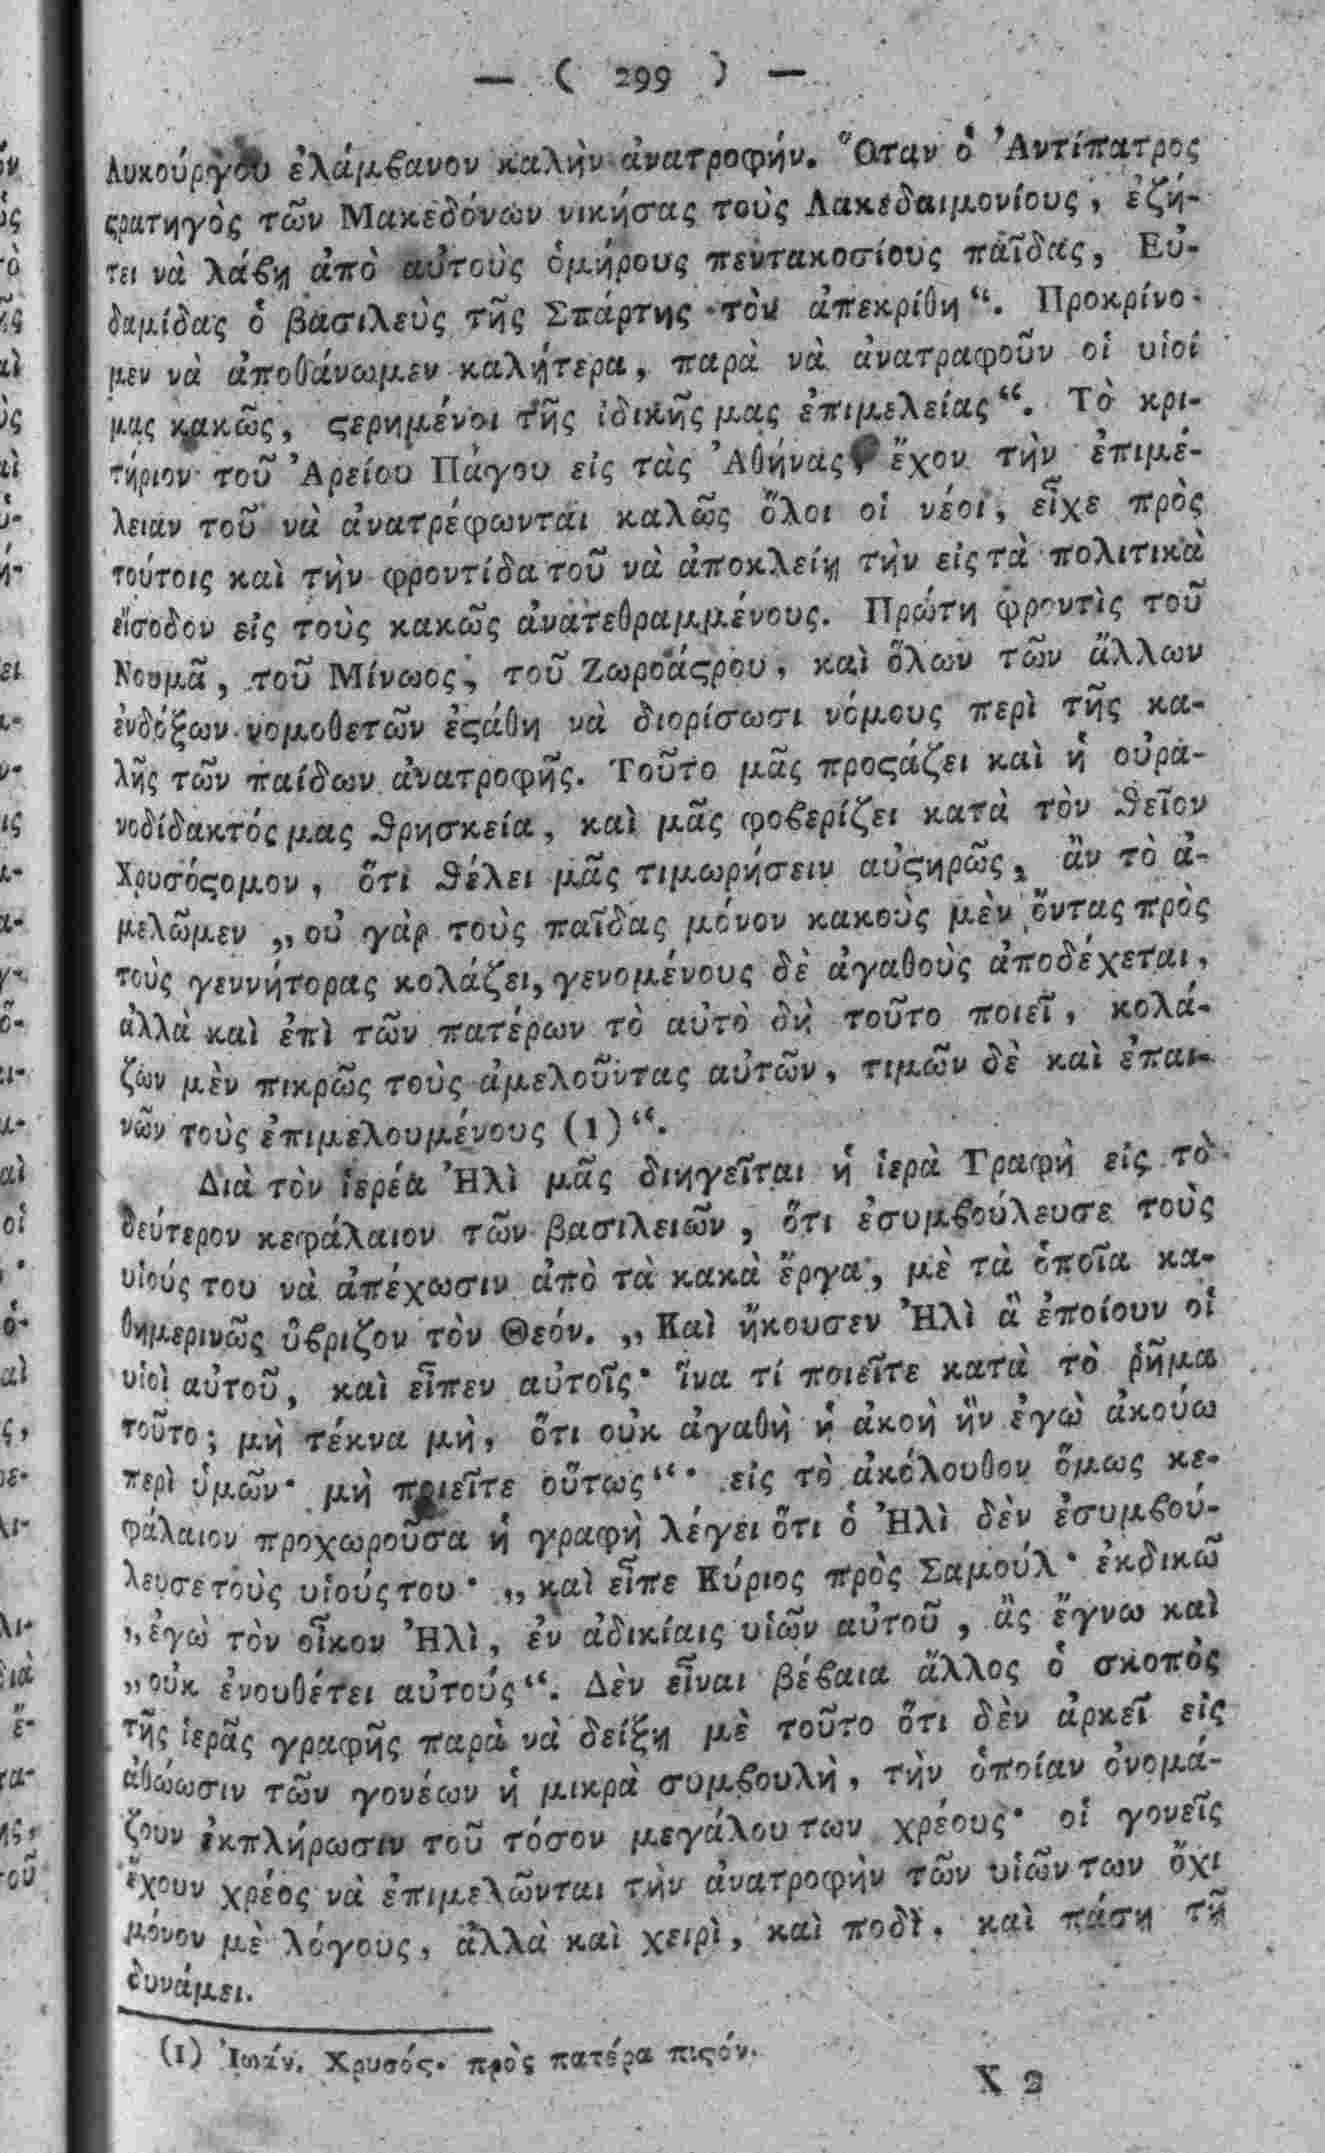 — ( 299 ) —
Λυκούργου ἐλάμβανον καλὴν ἀνατροφήν. Ὅταν ὁ Ἀντίπατρος
ϛρατηγὸς τῶν Μακεδόνων νικήσας τοὺς Λακεδαιμονίους, ἐζή-
τει νὰ λάβῃ ἀπὸ αὐτοὺς ὁμήρους πεντακοσίους παῖδας, Εὐ-
δαμίδας ὁ βασιλεὺς τῆς Σπάρτης τὸν ἀπεκρίθη“. Προκρίνο-
μεν νὰ ἀποθάνωμεν καλήτερα, παρὰ νὰ ἀνατραφοῦν οἱ υἱοί
μας κακῶς, ϛερημένοι τῆς ἰδικῆς μας ἐπιμελείας“. Τὸ κρι-
τήριον τοῦ Ἀρείου Πάγου εἰς τὰς Ἀθήνας, ἔχον τὴν ἐπιμέ-
λειαν τοῦ νὰ ἀνατρέφωνται καλῶς ὅλοι οἱ νέοι, εἶχε πρὸς
τούτοις καὶ τὴν φροντίδα τοῦ νὰ ἀποκλείῃ τὴν εἰς τὰ πολιτικὰ
εἴσοδον εἰς τοὺς κακῶς ἀνατεθραμμένους. Πρώτη φροντὶς τοῦ
Νουμᾶ, τοῦ Μίνωος, τοῦ Ζωροάϛρου, καὶ ὅλων τῶν ἄλλων
ἐνδόξων νομοθετῶν ἐϛάθη νὰ διορίσωσι νόμους περὶ τῆς κα-
λῆς τῶν παίδων ἀνατροφῆς. Τοῦτο μᾶς προϛάζει καὶ ἡ οὐρα-
νοδίδακτός μας ϑρησκεία, καὶ μᾶς φοβερίζει κατὰ τὸν ϑεῖον
Χρυσόϛομον, ὅτι ϑέλει μᾶς τιμωρήσειν αὐϛηρῶς, ἂν τὸ ἀ-
μελῶμεν „οὐ γὰρ τοὺς παῖδας μόνον κακοὺς μὲν ὄντας πρὸς
τοὺς γεννήτορας κολάζει, γενομένους δὲ ἀγαθοὺς ἀποδέχεται,
ἀλλὰ καὶ ἐπὶ τῶν πατέρων τὸ αὐτὸ δὴ τοῦτο ποιεῖ, κολά-
ζων μὲν πικρῶς τοὺς ἀμελοῦντας αὐτῶν, τιμῶν δὲ καὶ ἐπαι-
νῶν τοὺς ἐπιμελουμένους (1)“.
Διὰ τὸν ἱερέα Ἠλὶ μᾶς διηγεῖται ἡ ἱερὰ Γραφὴ εἰς τὸ
δεύτερον κεφάλαιον τῶν βασιλειῶν, ὅτι ἐσυμβούλευσε τοὺς
υἱούς του νὰ ἀπέχωσιν ἀπὸ τὰ κακὰ ἔργα, μὲ τὰ ὁποῖα κα-
θημερινῶς ὕβριζον τὸν Θεόν. „Καὶ ἤκουσεν Ἠλὶ ἃ ἐποίουν οἱ
υἱοὶ αὐτοῦ, καὶ εἶπεν αὐτοῖς· ἵνα τί ποιεῖτε κατὰ τὸ ῥῆμα
τοῦτο; μὴ τέκνα μὴ, ὅτι οὐκ ἀγαθὴ ἡ ἀκοὴ ἣν ἐγὼ ἀκούω
περὶ ὑμῶν· μὴ ποιεῖτε οὕτως“· εἰς τὸ ἀκόλουθον ὅμως κε-
φάλαιον προχωροῦσα ἡ γραφὴ λέγει ὅτι ὁ Ἠλὶ δὲν ἐσυμβού-
λευσε τοὺς υἱούς του· „καὶ εἶπε Κύριος πρὸς Σαμούλ· ἐκδικῶ
„ἐγὼ τὸν οἶκον Ἠλὶ, ἐν ἀδικίαις υἱῶν αὐτοῦ, ἃς ἔγνω καὶ
„οὐκ ἐνουθέτει αὐτούς“. Δὲν εἶναι βέβαια ἄλλος ὁ σκοπὸς
τῆς ἱερᾶς γραφῆς παρὰ νὰ δείξῃ μὲ τοῦτο ὅτι δὲν ἀρκεῖ εἰς
ἀθώωσιν τῶν γονέων ἡ μικρὰ συμβουλὴ, τὴν ὁποίαν ὀνομά-
ζουν ἐκπλήρωσιν τοῦ τόσον μεγάλου των χρέους· οἱ γονεῖς
ἔχουν χρέος νὰ ἐπιμελῶνται τὴν ἀνατροφὴν τῶν υἱῶν των ὄχι
μόνον μὲ λόγους, ἀλλὰ καὶ χειρὶ, καὶ ποδὶ, καὶ πάσῃ τῇ
δυνάμει.
(1) Ἰωάν. Χρυσόϛ. πρὸς πατέρα πιϛόν.
X 2